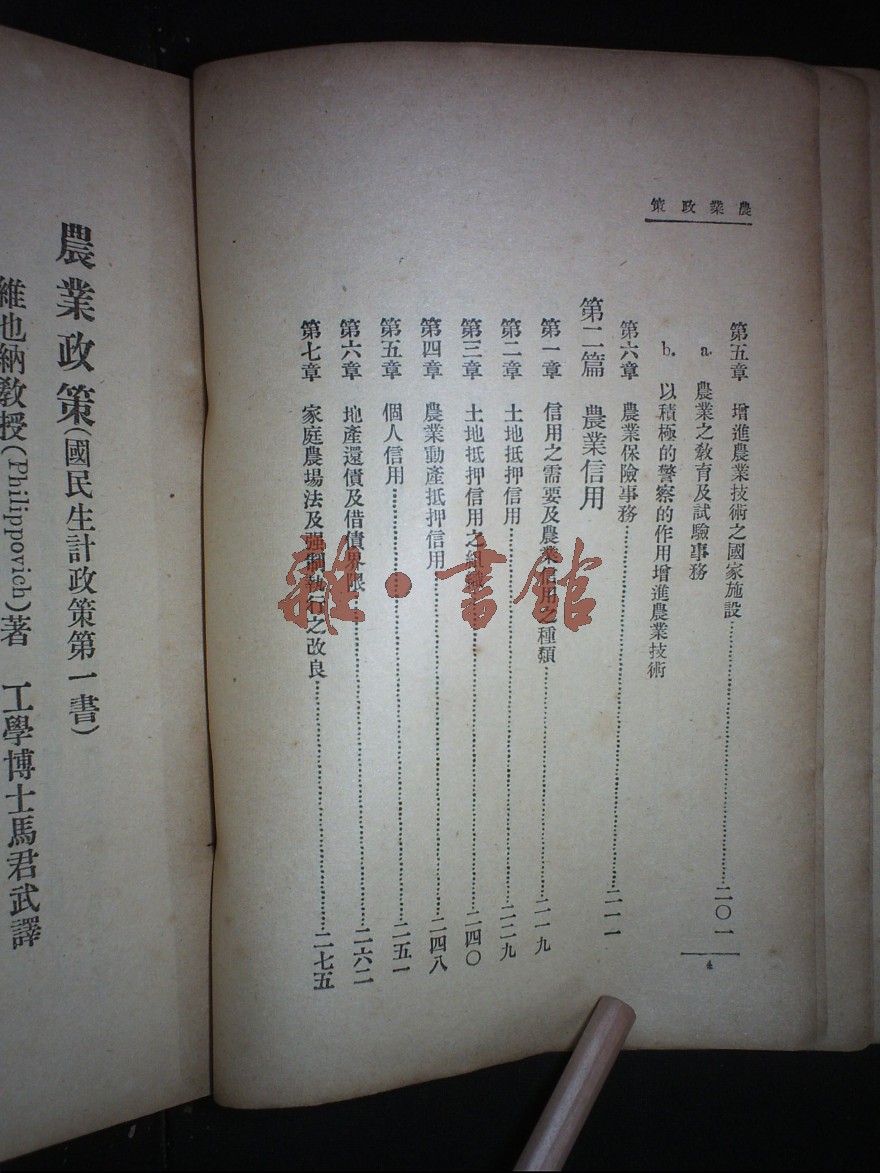 農業政策
第五章 增進農業技術之國家施設……二〇一
a. 農業之教育及試驗事務
b. 以積極的警察的作用增進農業技術
第六章 農業保險事務……二一一
第二篇 農業信用
第一章 信用之需要及農業信用之種類……二一九
第二章 土地抵押信用……二二九
第三章 土地抵押信用之組織……二四〇
第四章 農業動產抵押信用……二四八
第五章 個人信用……二五一
第六章 地產還債及借債界限……二六二
第七章 家庭農場法及强制執行之改良……二七五
4
農業政策(國民生計政策第一書)
維也納教授(Philippovich)著 工學博士馬君武譯
雜·書館